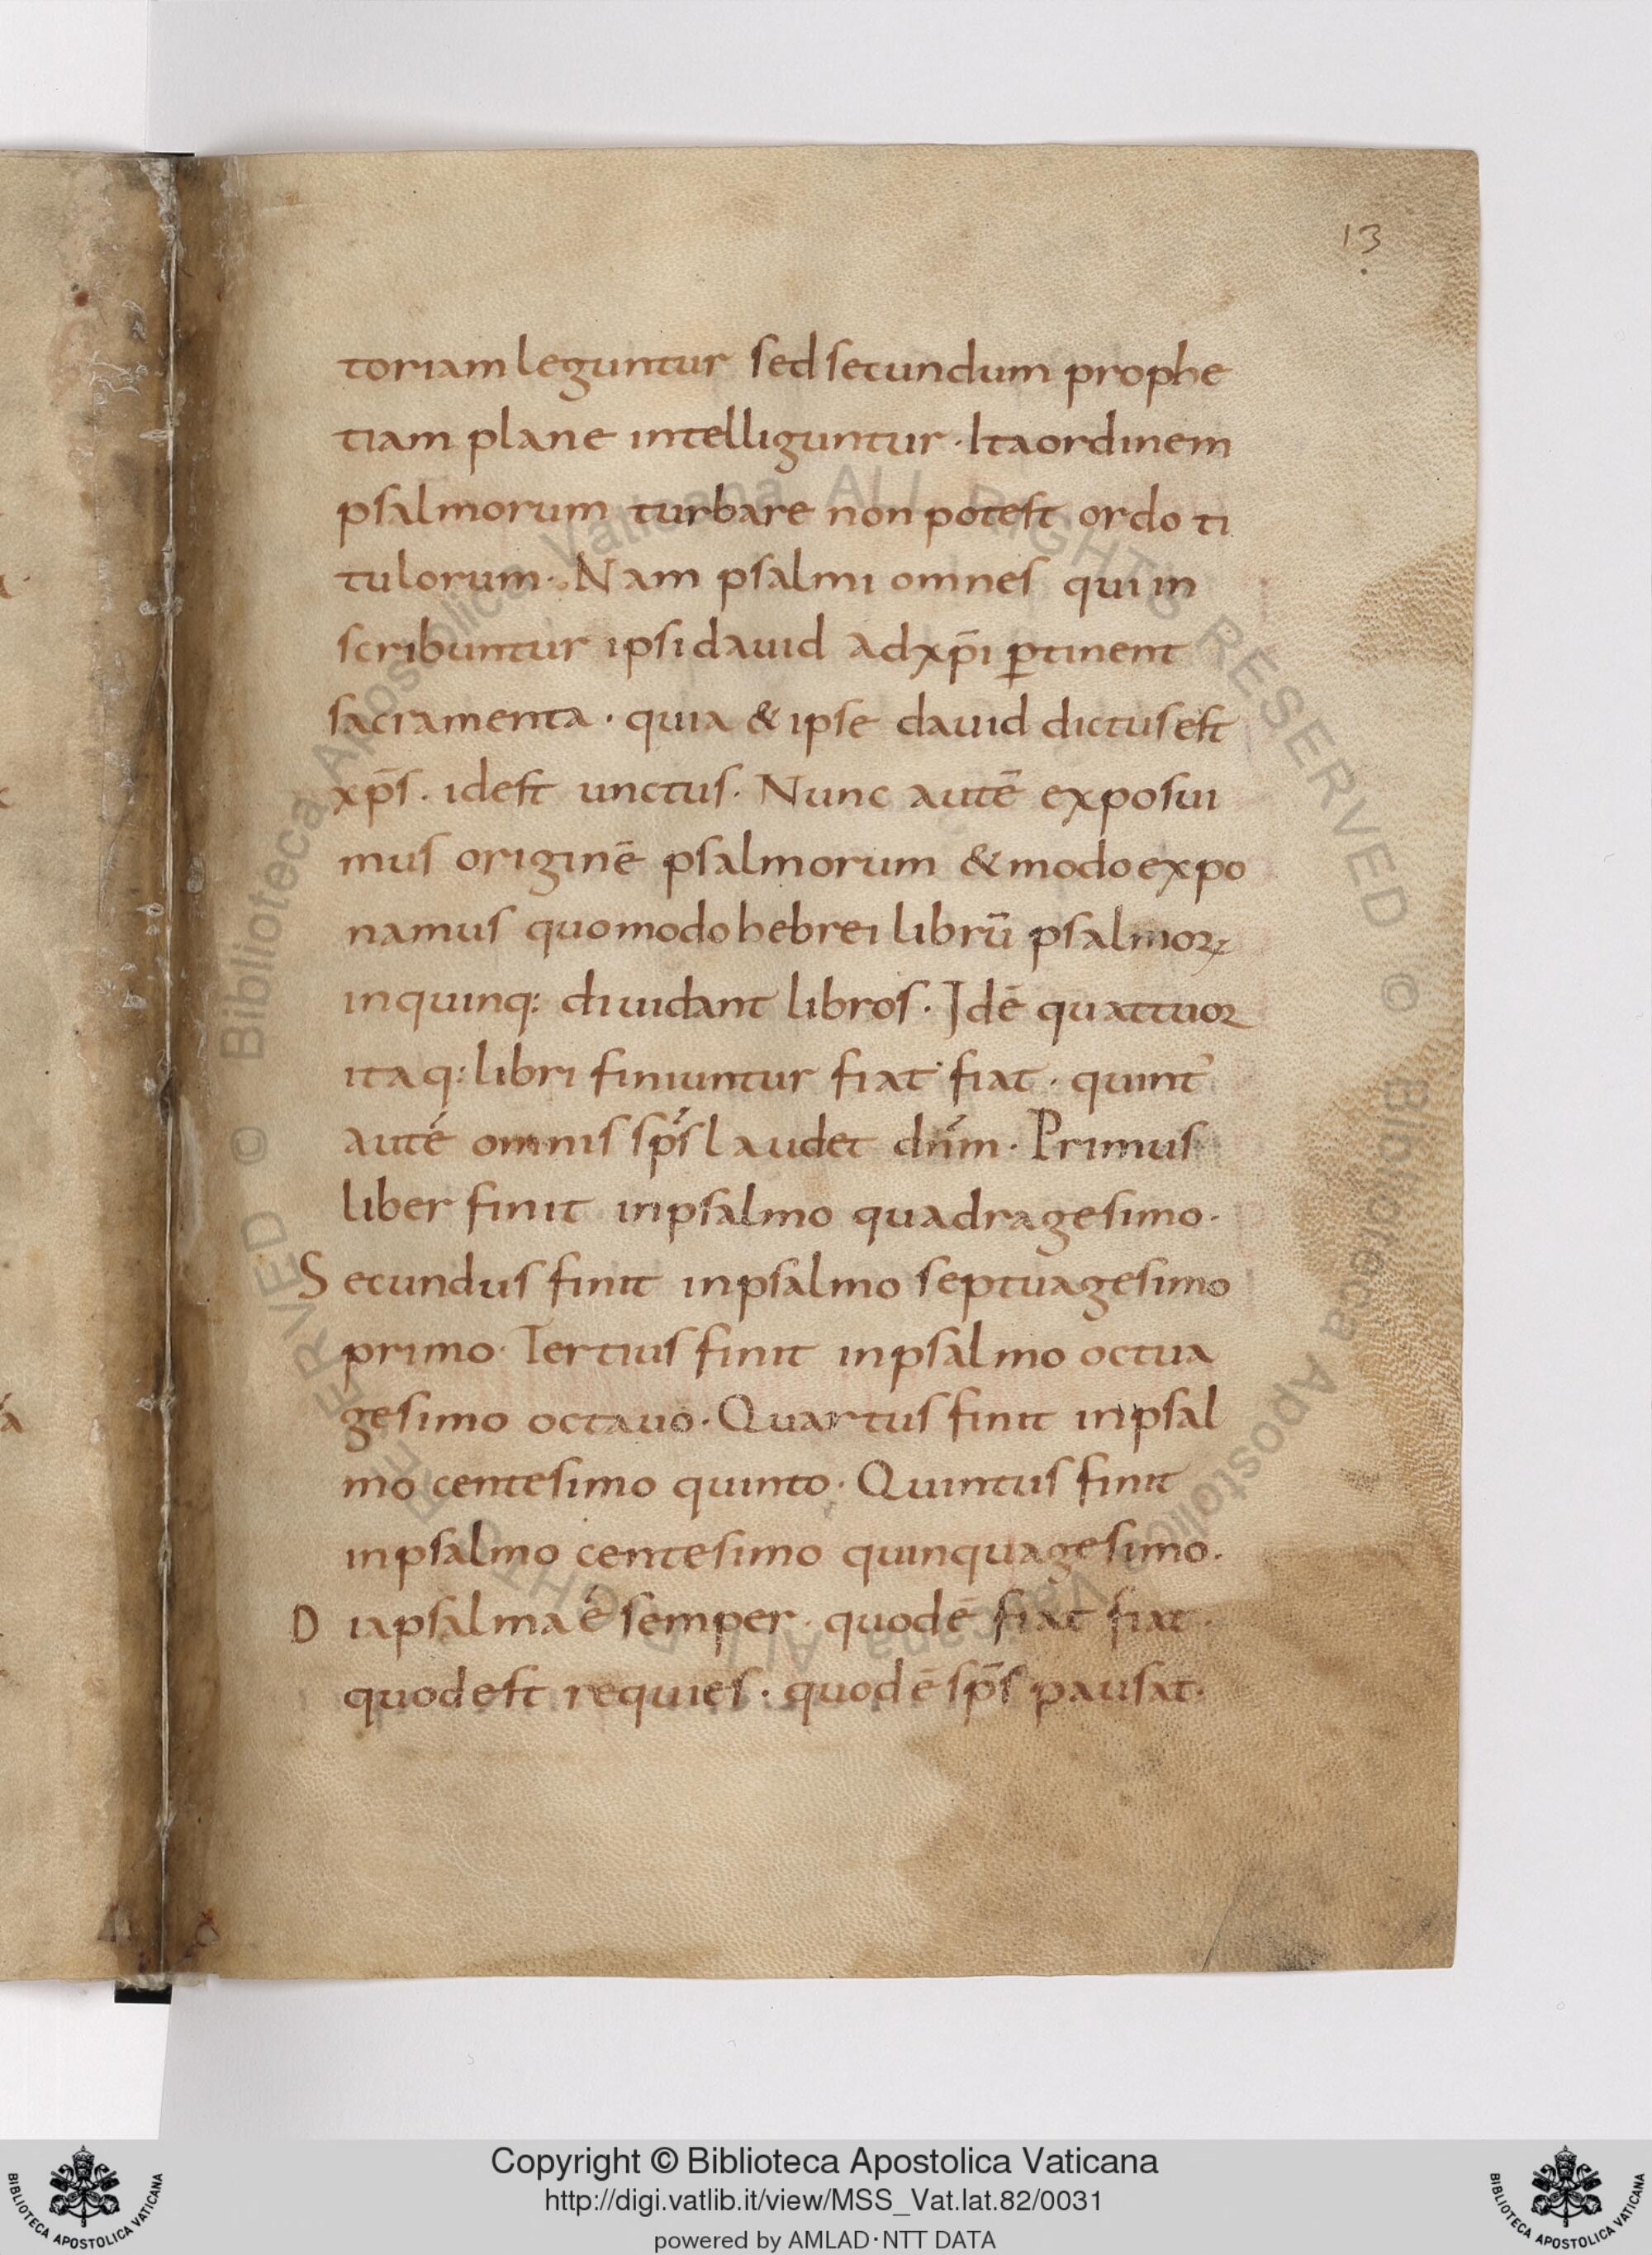 13
toriam leguntur sed secundum prophe
tiam plane intelliguntur · Ita ordinem
psalmorum turbare non potest ordo ti
tulorum · Nam psalmi omnes qui in
scribuntur ipsi dauid ad xp̄i ꝑtinent
sacramenta · quia & ipse dauid dictus est
xp̄s · id est unctus · Nunc autē exposui
mus originē psalmorum & modo expo
namus quomodo hebrei librū psalmoꝝ
in quinq: diuidant libros · Idē quattuor
itaq: libri finiuntur fiat fiat · quint᾿
auté omnis sṕs laudet dńm · Primus
liber finit in psalmo quadragesimo ·
Secundus finit in psalmo septuagesimo
primo · Tertius finit in psalmo octua
gesimo octauo · Quartus finit in psal
mo centesimo quinto · Quintus finit
in psalmo centesimo quinquagesimo ·
Diapsalma é semper · quod ē fiat fiat ·
quod est requies · quod ē sp̄s pausat ·
Copyright © Biblioteca Apostolica Vaticana
http://digi.vatlib.it/view/MSS_Vat.lat.82/0031
powered by AMLAD·NTT DATA
BIBLIOTECA APOSTOLICA VATICANA
BIBLIOTECA APOSTOLICA VATICANA